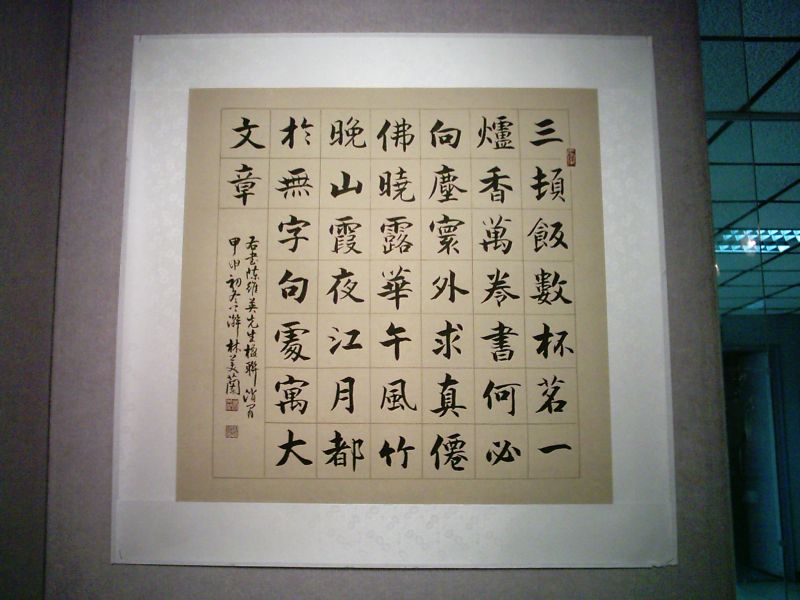 三頓飯數杯茗一
爐香萬卷書何必
向塵寰外求真僊
佛曉露華午風竹
晚山霞夜江月都
於無字句處寓大
文章
右書陳維英先生楹聯
甲申初冬 林美蘭